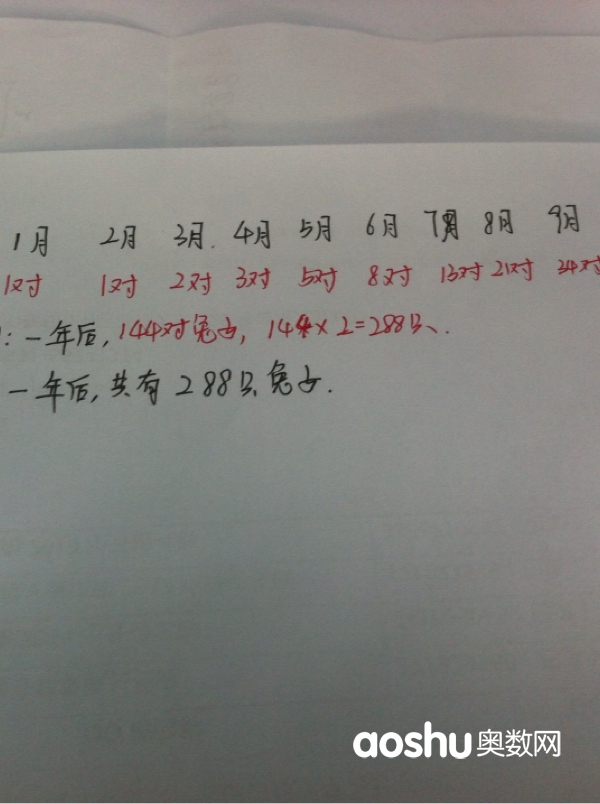 1月 2月 3月. 4月 5月 6月 7月 8月 9月
1对 1对 2对 3对 5对 8对 13对 21对 34对
: 一年后, 144对兔子, 144×2=288只.
一年后, 共有 288只兔子.
aoshu奥数网